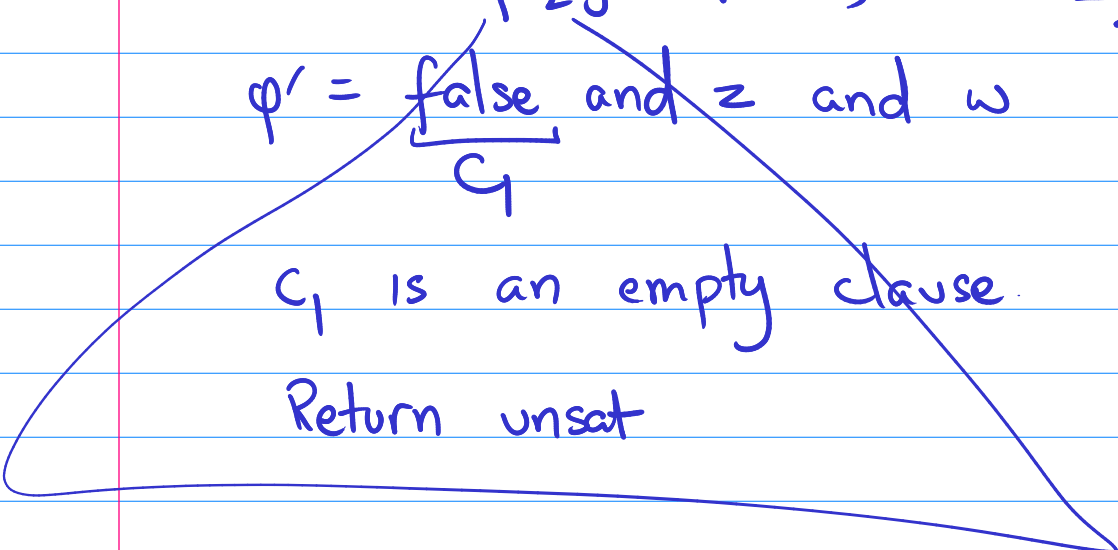 φ' = false and z and w
C₁
C₁ is an empty clause
Return unsat